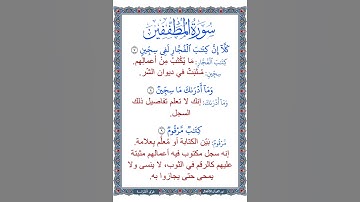 سُورَةُ المُطَفِّفِين
كَلَّا إِنَّ كِتَٰبَ ٱلْفُجَّارِ لَفِي سِجِّينٍ ٧
كِتَٰبَ ٱلْفُجَّارِ: مَا يُكْتَبُ مِنْ أَعْمَالِهِم.
سِجِّينٍ: مُثْبَتٌ في ديوان الشّر.
وَمَآ أَدْرَىٰكَ مَا سِجِّينٌ ٨
وَمَآ أَدْرَىٰكَ: إنك لا تعلم تفاصيل ذلك
السجل.
كِتَٰبٌ مَّرْقُومٌ ٩
مَرْقُومٌ: بَيّن الكتابة أو مُعلَّم بعلامة.
إنه سجل مكتوب فيه أعمالهم مثبتة
عليهم كالرقم في الثوب، لا ينسى ولا
يمحى حتى يجازوا به.